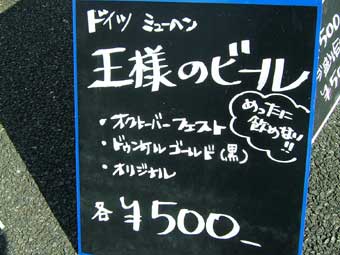 ドイツ ミューヘン
王様のビール
めったに
飲めない!!
・オクトーバーフェスト
・ドゥンケルゴールド(黒)
・オリジナル
各 ¥500_
500